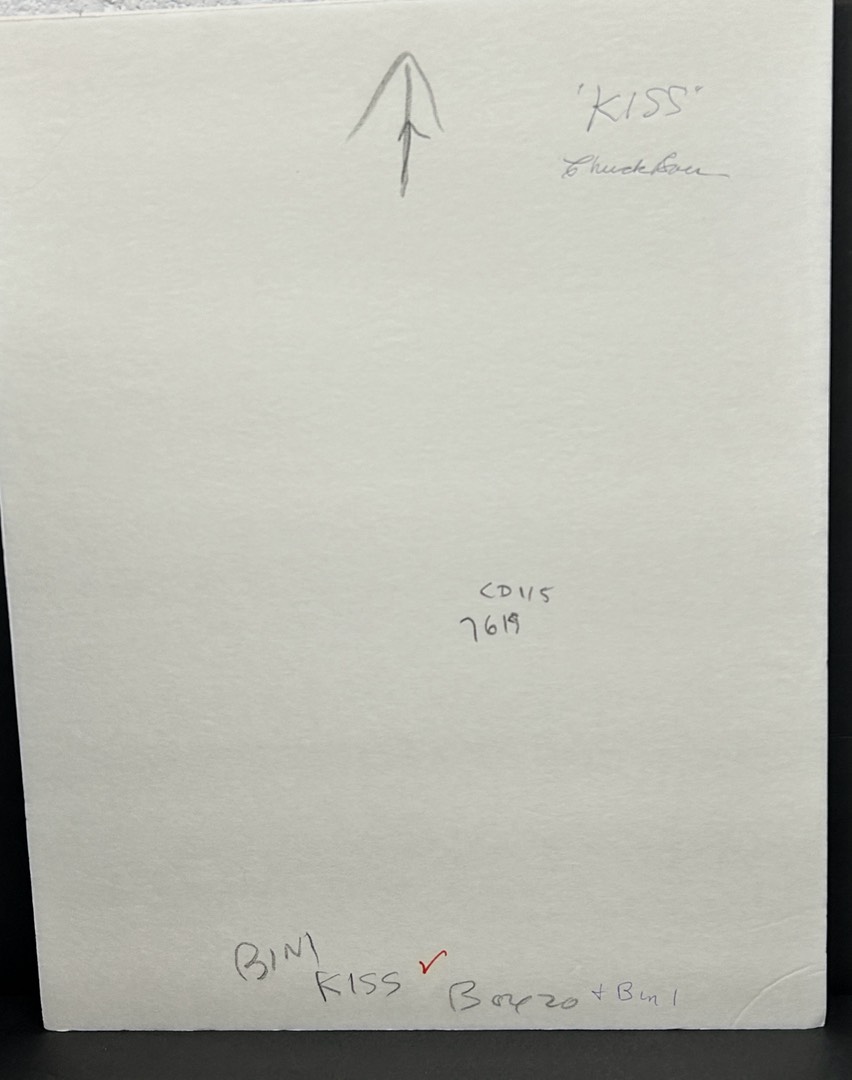 "KISS"
Chuck
CD115
7619
BIN1
KISS ✓
Box 20 + Bin 1